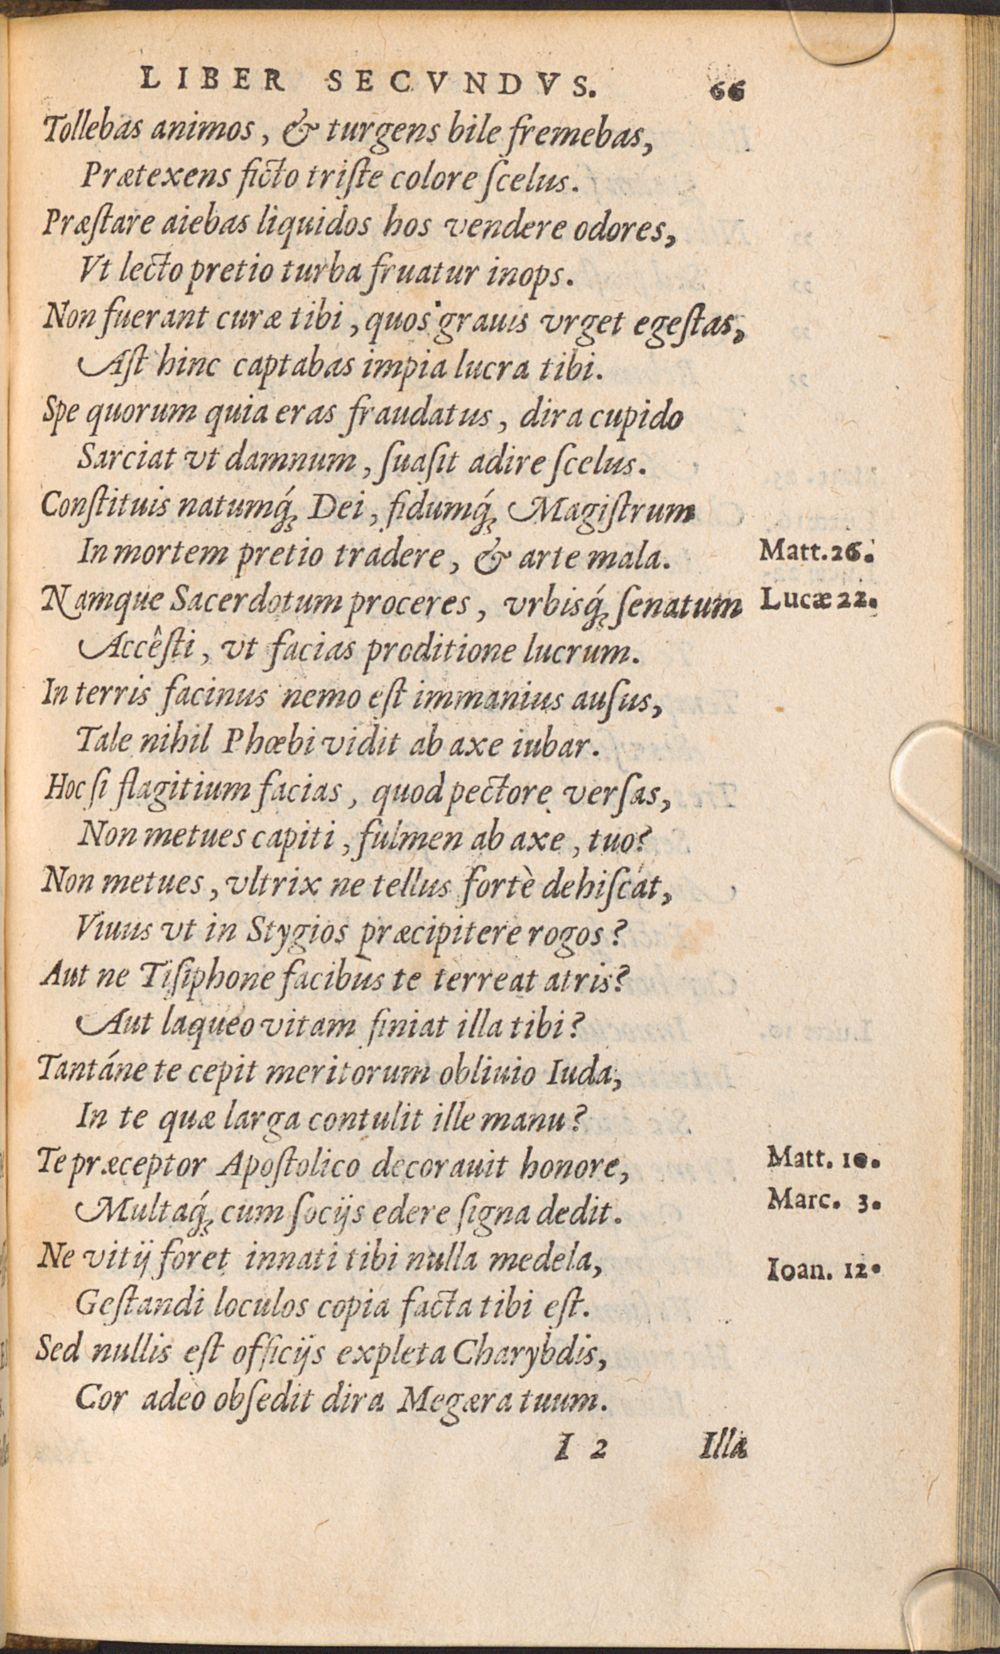 LIBER SECVNDVS. 66
Tollebas animos, & turgens bile fremebas,
Prætexens ficto triſte colore ſcelus.
Præſtare aiebas liquidos hos vendere odores,
Vt lecto pretio turba fruatur inops.
Non fuerant curæ tibi, quos grauis vrget egeſtas,
Aſt hinc captabas impia lucra tibi.
Spe quorum quia eras fraudatus, dira cupido
Sarciat vt damnum, ſuaſit adire ſcelus.
Conſtituis natumq́; Dei, fidumq́; Magiſtrum
In mortem pretio tradere, & arte mala. Matt. 26.
Namque Sacerdotum proceres, vrbisq́; ſenatum Lucæ 22.
Accêſti, vt facias proditione lucrum.
In terris facinus nemo eſt immanius auſus,
Tale nihil Phœbi vidit ab axe iubar.
Hoc ſi flagitium facias, quod pectore verſas,
Non metues capiti, fulmen ab axe, tuo?
Non metues, vltrix ne tellus fortè dehiſcat,
Viuus vt in Stygios præcipitere rogos?
Aut ne Tiſiphone facibus te terreat atris?
Aut laqueo vitam finiat illa tibi?
Tantáne te cepit meritorum obliuio Iuda,
In te quæ larga contulit ille manu?
Te præceptor Apoſtolico decorauit honore, Matt. 10.
Multaq́; cum ſocijs edere ſigna dedit. Marc. 3.
Ne vitij foret innati tibi nulla medela, Ioan. 12.
Geſtandi loculos copia facta tibi eſt.
Sed nullis eſt officijs expleta Charybdis,
Cor adeo obſedit dira Megæra tuum.
I 2 Illa